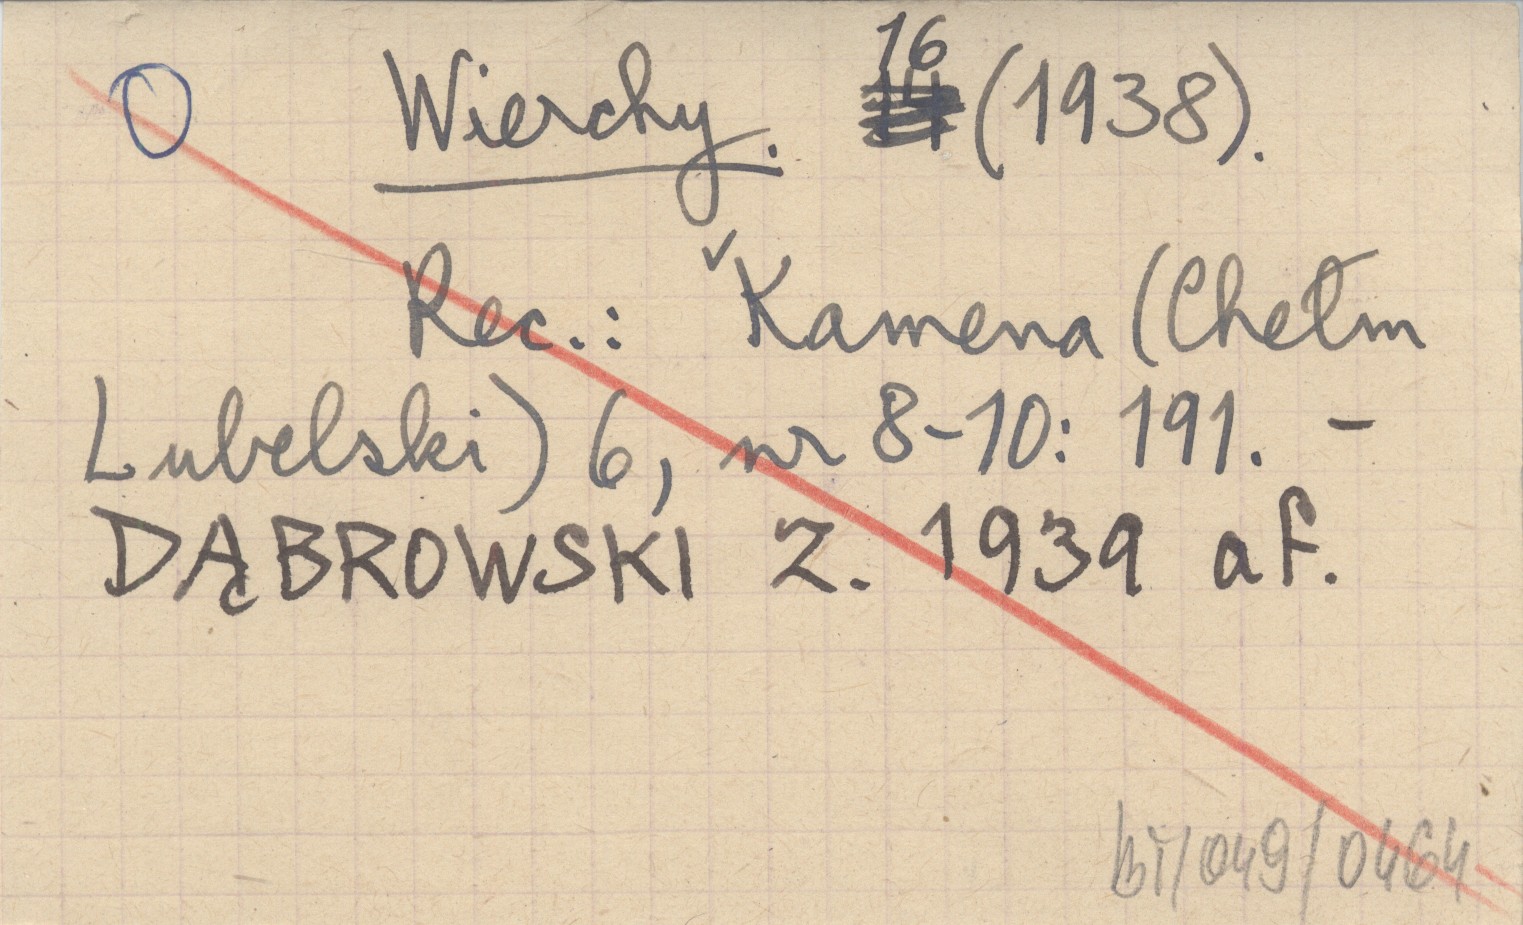 Wierchy. 16 (1938).
Rec.: Kamena (Chełm
Lubelski) 6, nr 8-10: 191. -
DĄBROWSKI Z. 1939 af.
bī/049/0464